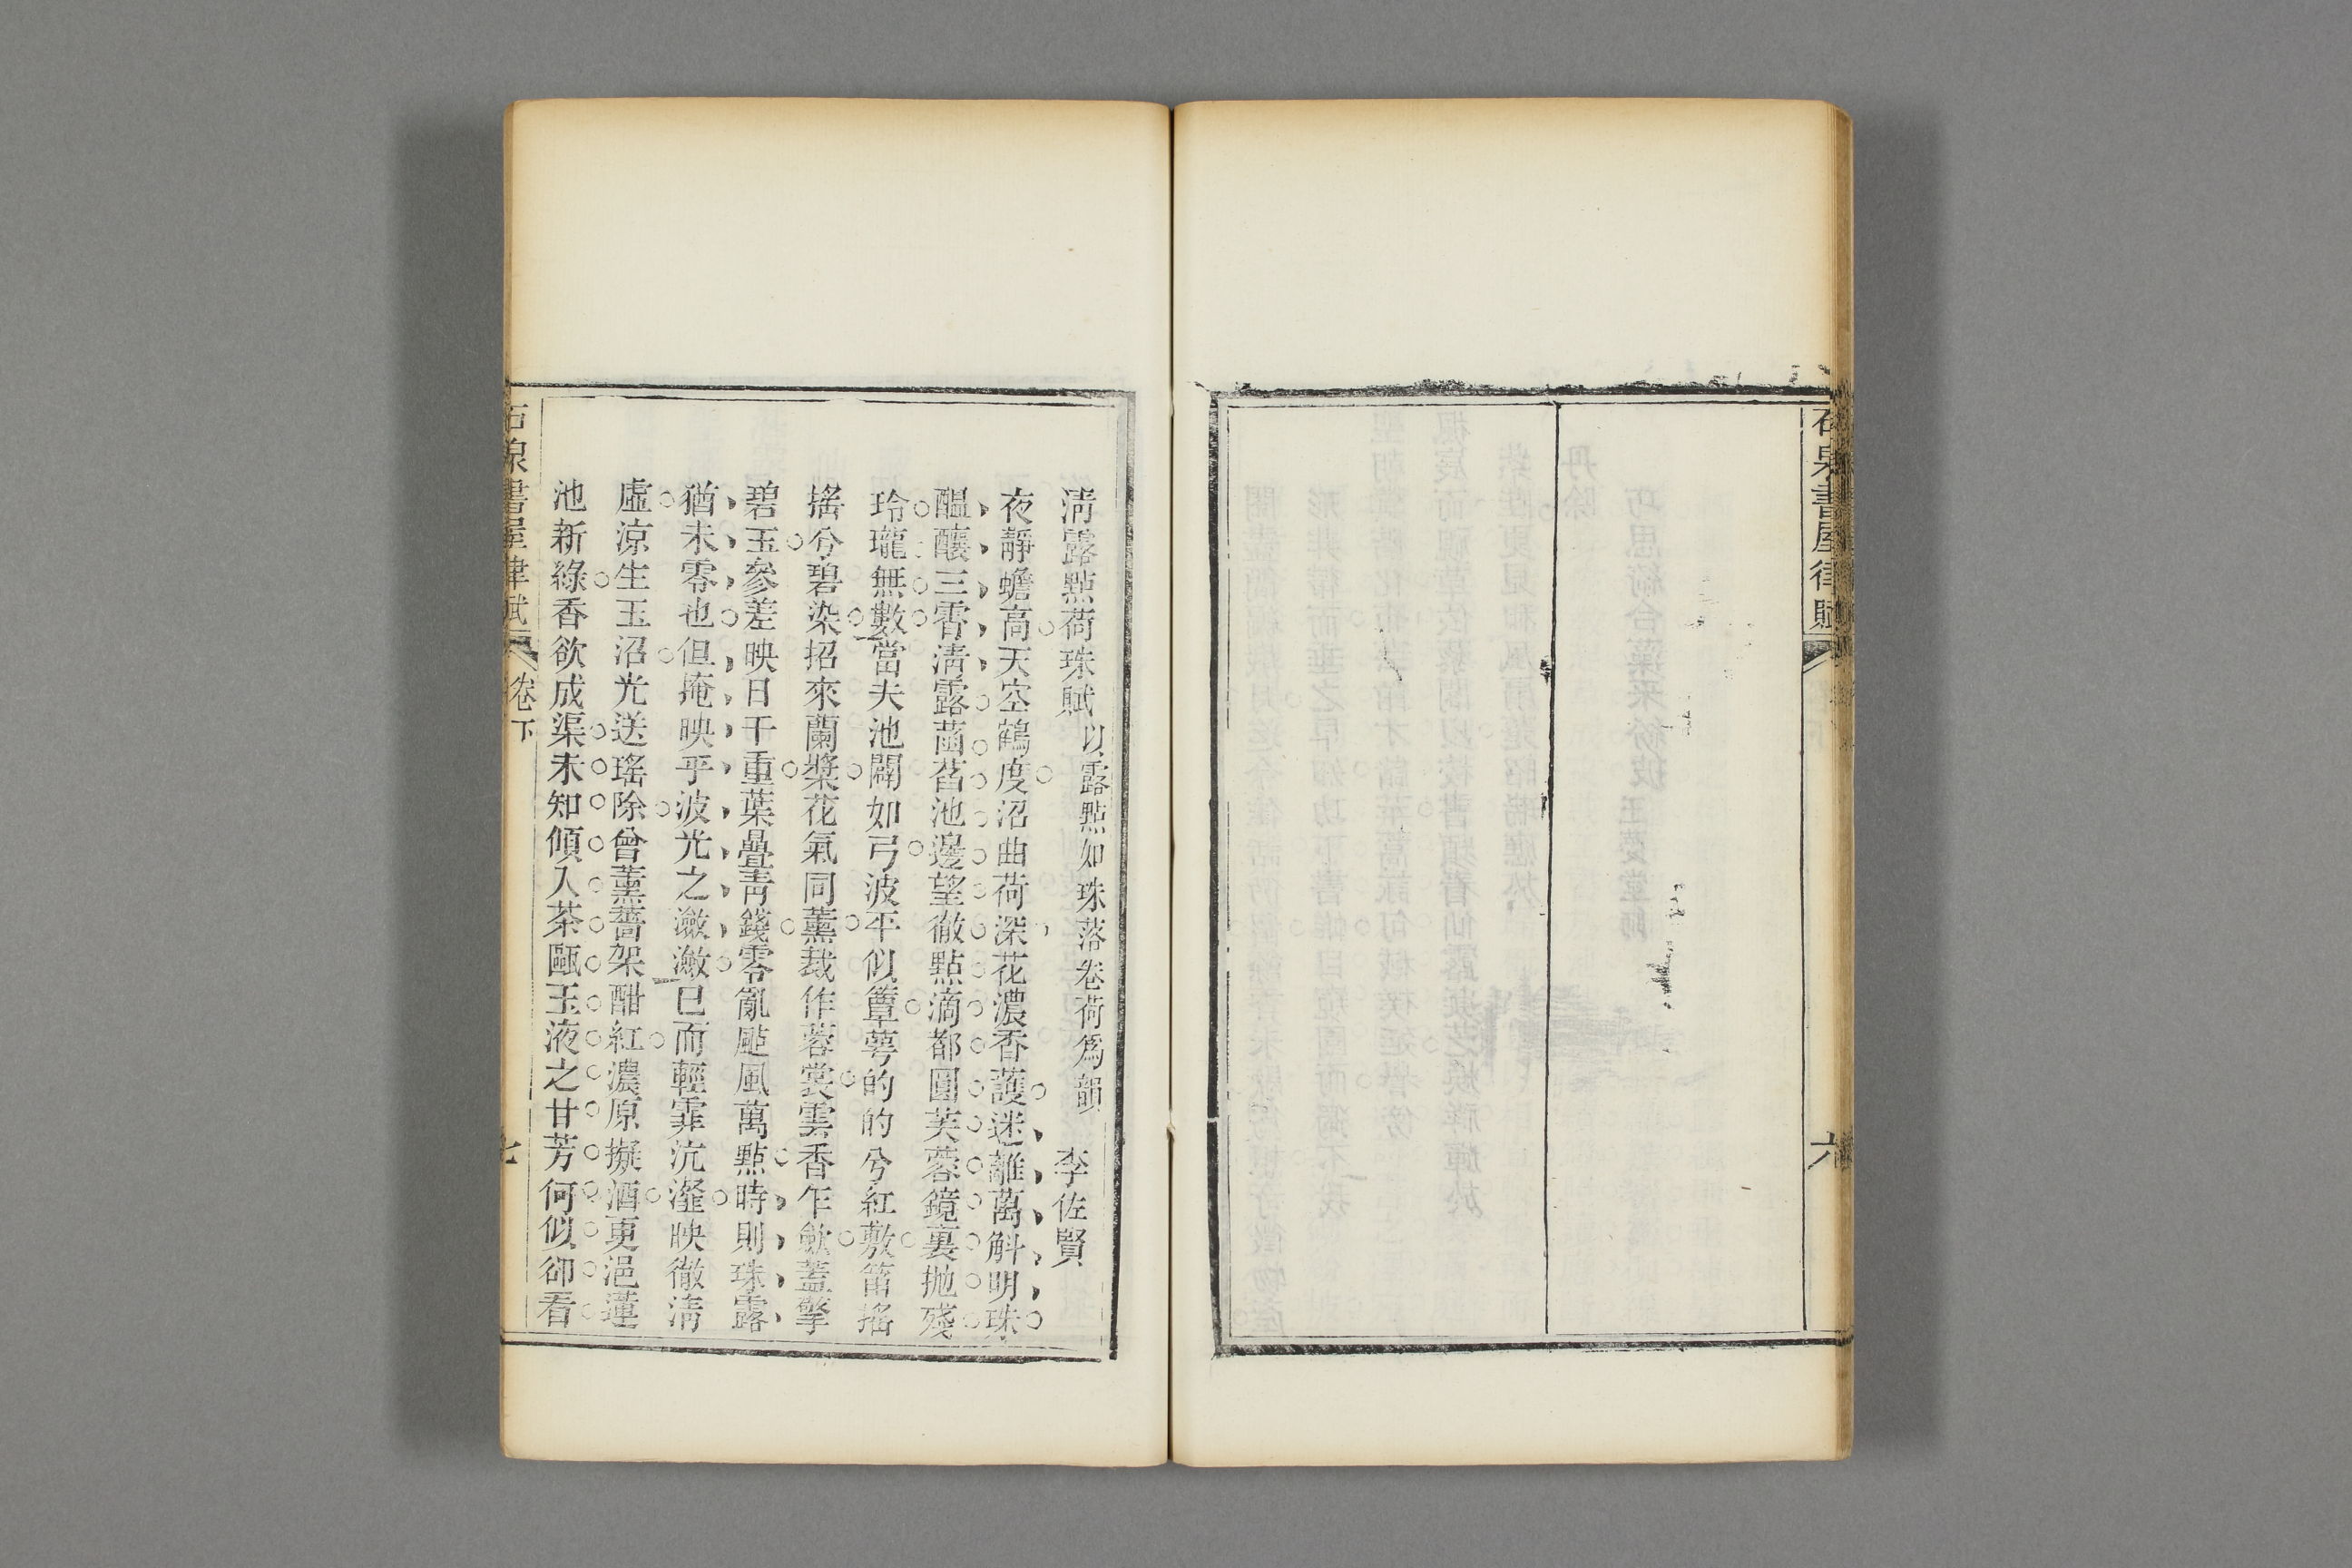 石泉書屋律賦
六
清露點荷珠賦以露點如珠落卷荷爲韻 李佐賢
夜靜蟾高天空鶴度沼曲荷深花濃香護迷離萬斛明珠
醞釀三霄清露菡萏池邊望徹點滴都圓芙蓉鏡裏拋殘
玲瓏無數當夫池闢如弓波平似簟萼的的兮紅敷筩搖
搖兮碧染招來蘭槳花氣同薰裁作蓉裳雲香乍斂蓋擎
碧玉參差映日千重葉疊青錢零亂颭風萬點時則珠露
猶未零也但掩映乎波光之瀲瀲已而輕霏沆瀣映徹清
虛涼生玉沼光送瑤除曾薰薔架酣紅濃原擬酒更浥蓮
池新綠香欲成渠未知傾入茶甌玉液之甘芳何似卻看
石泉書屋律賦 卷下
七